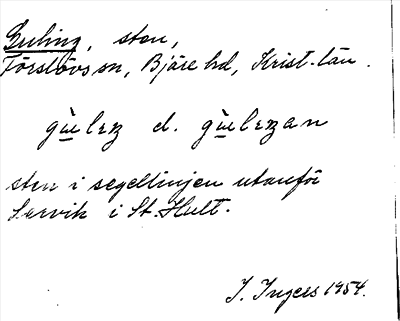 Guling, sten,
Förslövs sn, Bjäre hd, Krist. län.
gùleŋ el. gùleŋan
sten i segellinjen utanför
Servik i St. Hult.
I. Ingers 1954.